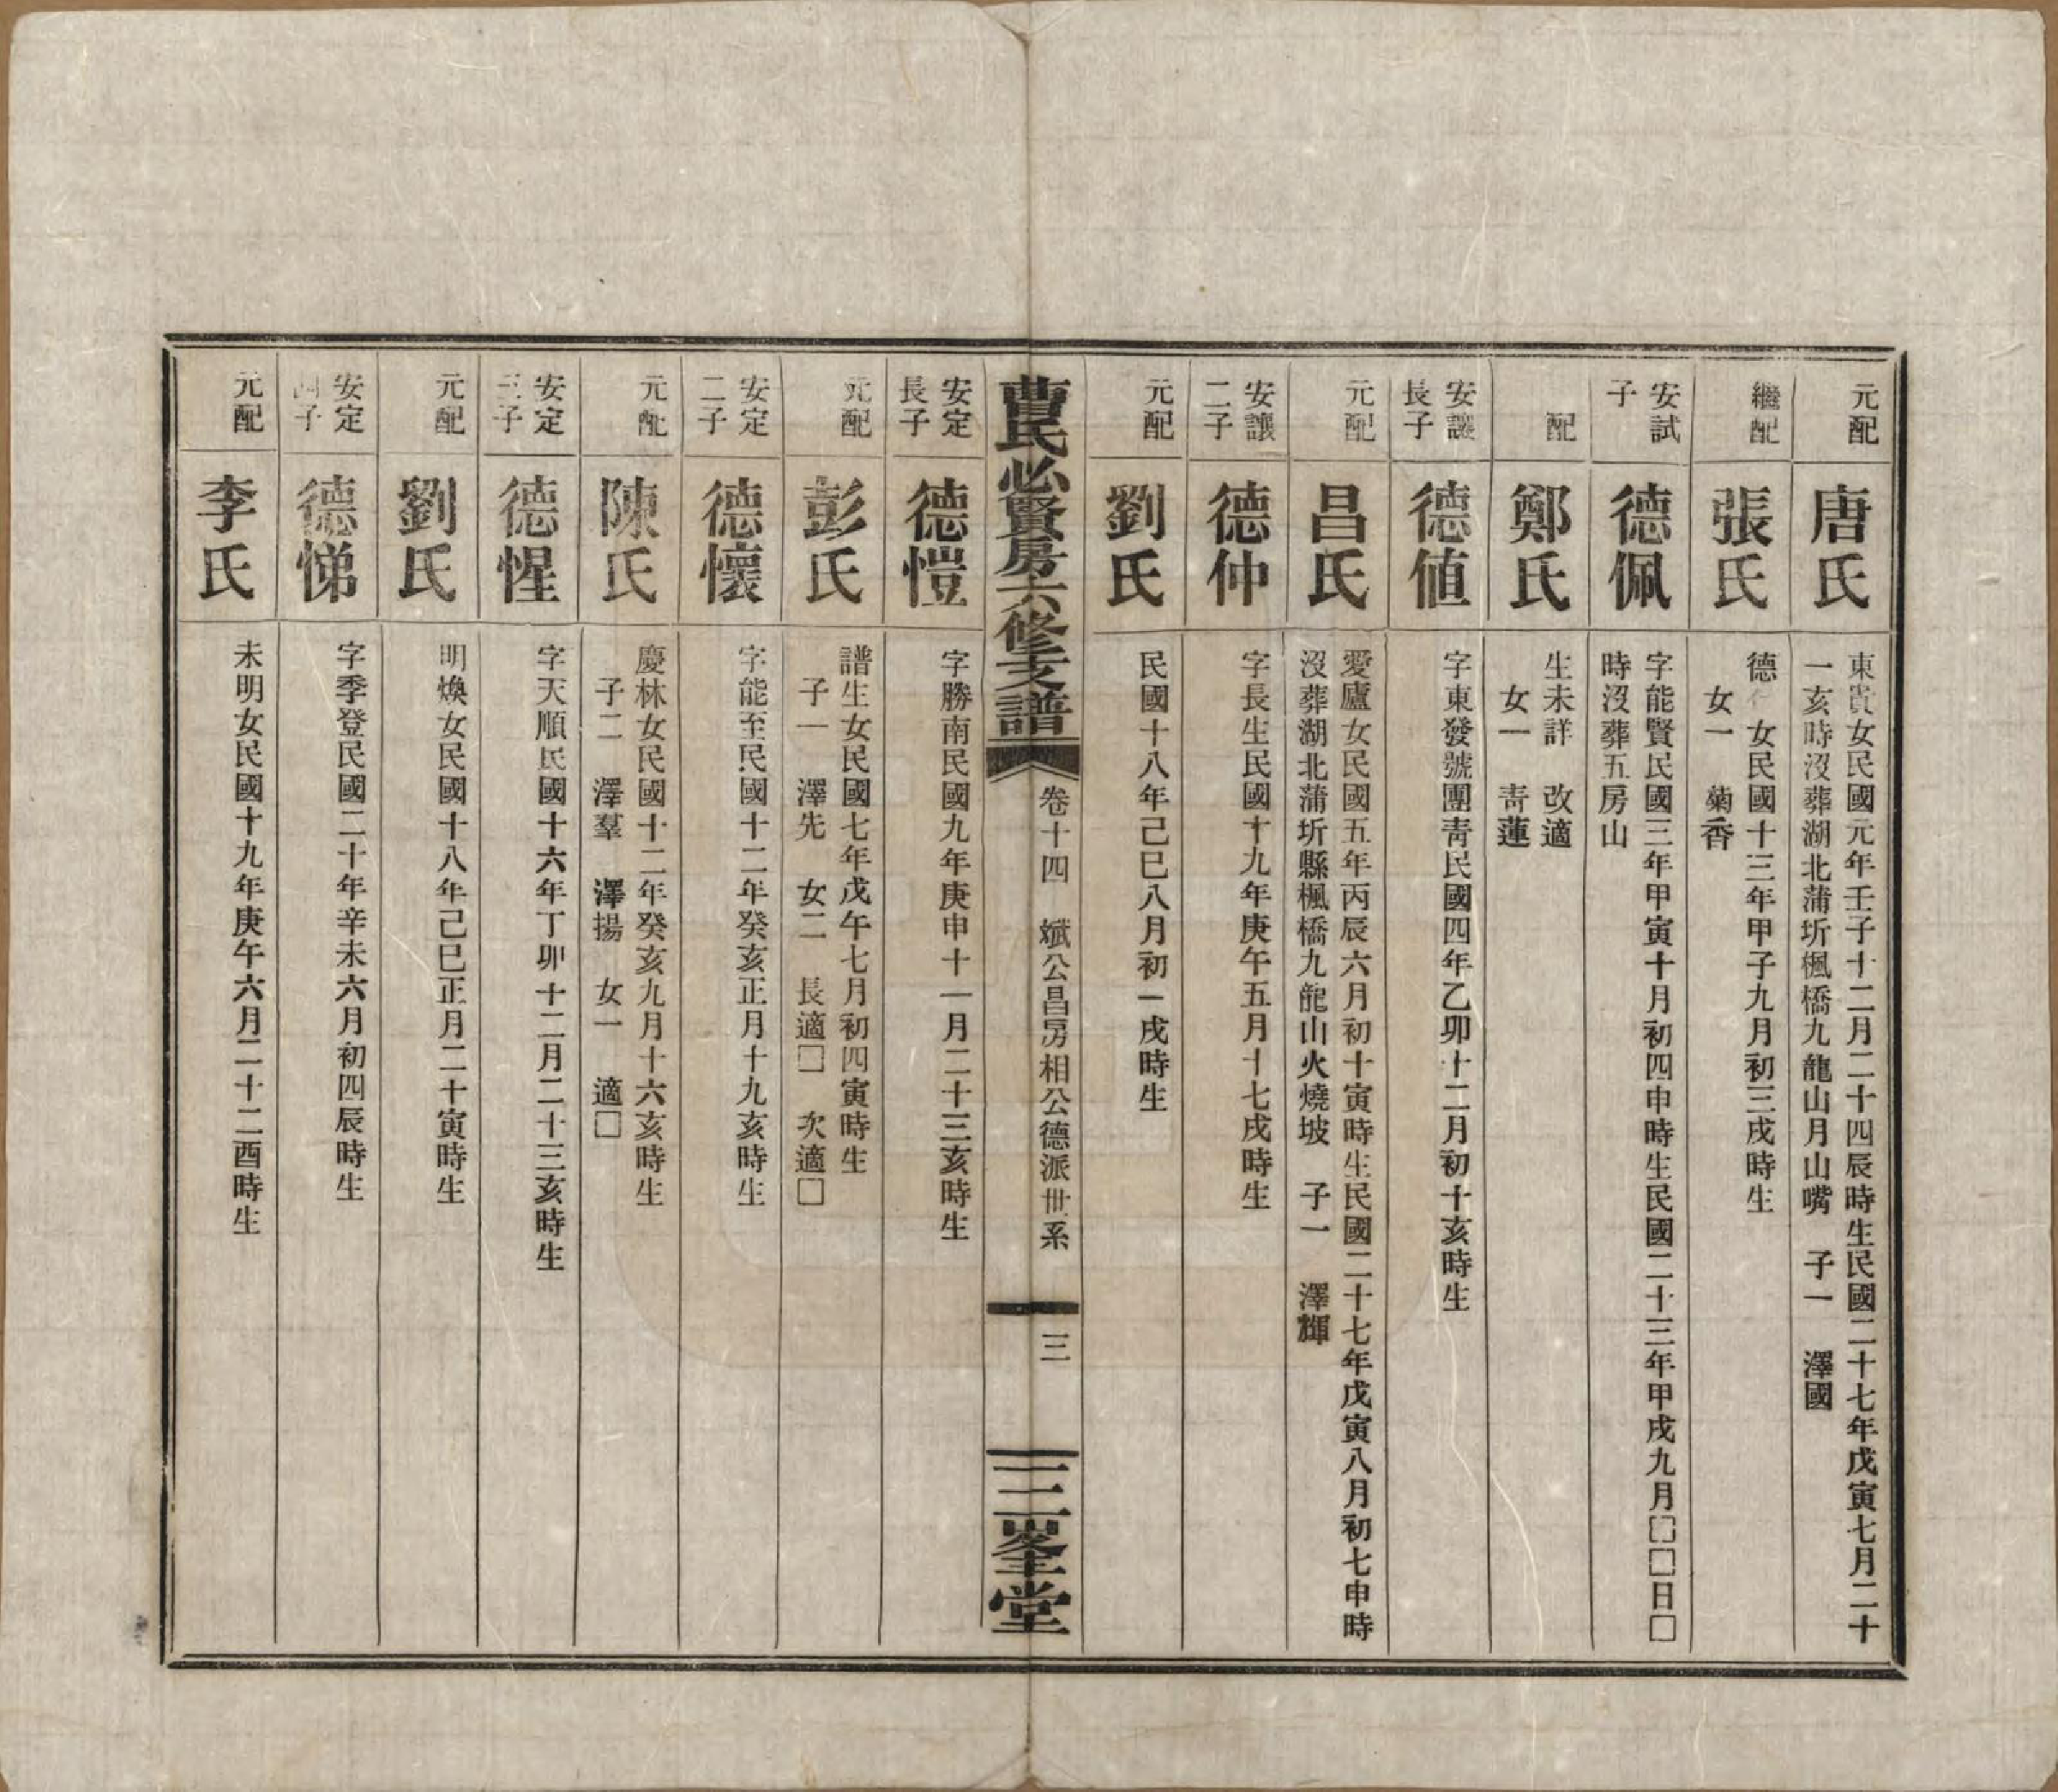 元配
唐氏
東貴女民國元年壬子十二月二十四辰時生民國二十七年戊寅七月二十
一亥時沒葬湖北蒲圻楓橋九龍山月山嘴　子一　澤國
繼配
張氏
德　女民國十三年甲子九月初三戌時生
女一　菊香
安試
子
德佩
字能賢民國三年甲寅十月初四申時生民國二十三年甲戌九月□□日□
時沒葬五房山
配
鄭氏
生未詳　改適
女一　靑蓮
安讓
長子
德値
字東發號團靑民國四年乙卯十二月初十亥時生
元配
昌氏
愛廬女民國五年丙辰六月初十寅時生民國二十七年戊寅八月初七申時
沒葬湖北蒲圻縣楓橋九龍山火燒坡　子一　澤輝
安讓
二子
德仲
字長生民國十九年庚午五月十七戌時生
元配
劉氏
民國十八年己巳八月初一戌時生
曹氏必賢房六修支譜
卷十四　斌公昌房相公德派世系
三
三峯堂
安定
長子
德愷
字勝南民國九年庚申十一月二十三亥時生
元配
彭氏
譜生女民國七年戊午七月初四寅時生
子一　澤先　女二　長適□　次適□
安定
二子
德懷
字能至民國十二年癸亥正月十九亥時生
元配
陳氏
慶林女民國十二年癸亥九月十六亥時生
子二　澤羣　澤揚　女一　適□
安定
三子
德惺
字天順民國十六年丁卯十二月二十三亥時生
元配
劉氏
明煥女民國十八年己巳正月二十寅時生
安定
四子
德悌
字季登民國二十年辛未六月初四辰時生
元配
李氏
未明女民國十九年庚午六月二十二酉時生